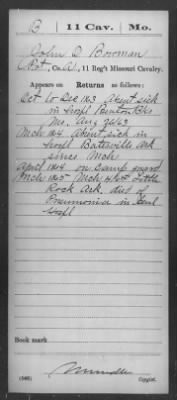 B | 11 Cav. | Mo.
John D Bowman
Pvt, Co. A, 11 Reg't Missouri Cavalry.
Appears on Returns as follows:
Oct to Dec 1863 Absent sick
in Hospl Benton Bks
Mo. Aug 26/63
Mch 1864 Absent, sick in
Hospl Batesville Ark
since Mch
April 1864 on Camp guard
Mch 1865 Mch 4 1865 Little
Rock Ark. died of
Pneumonia in Genl
Hospl
Book mark:
(546)
Copyist.